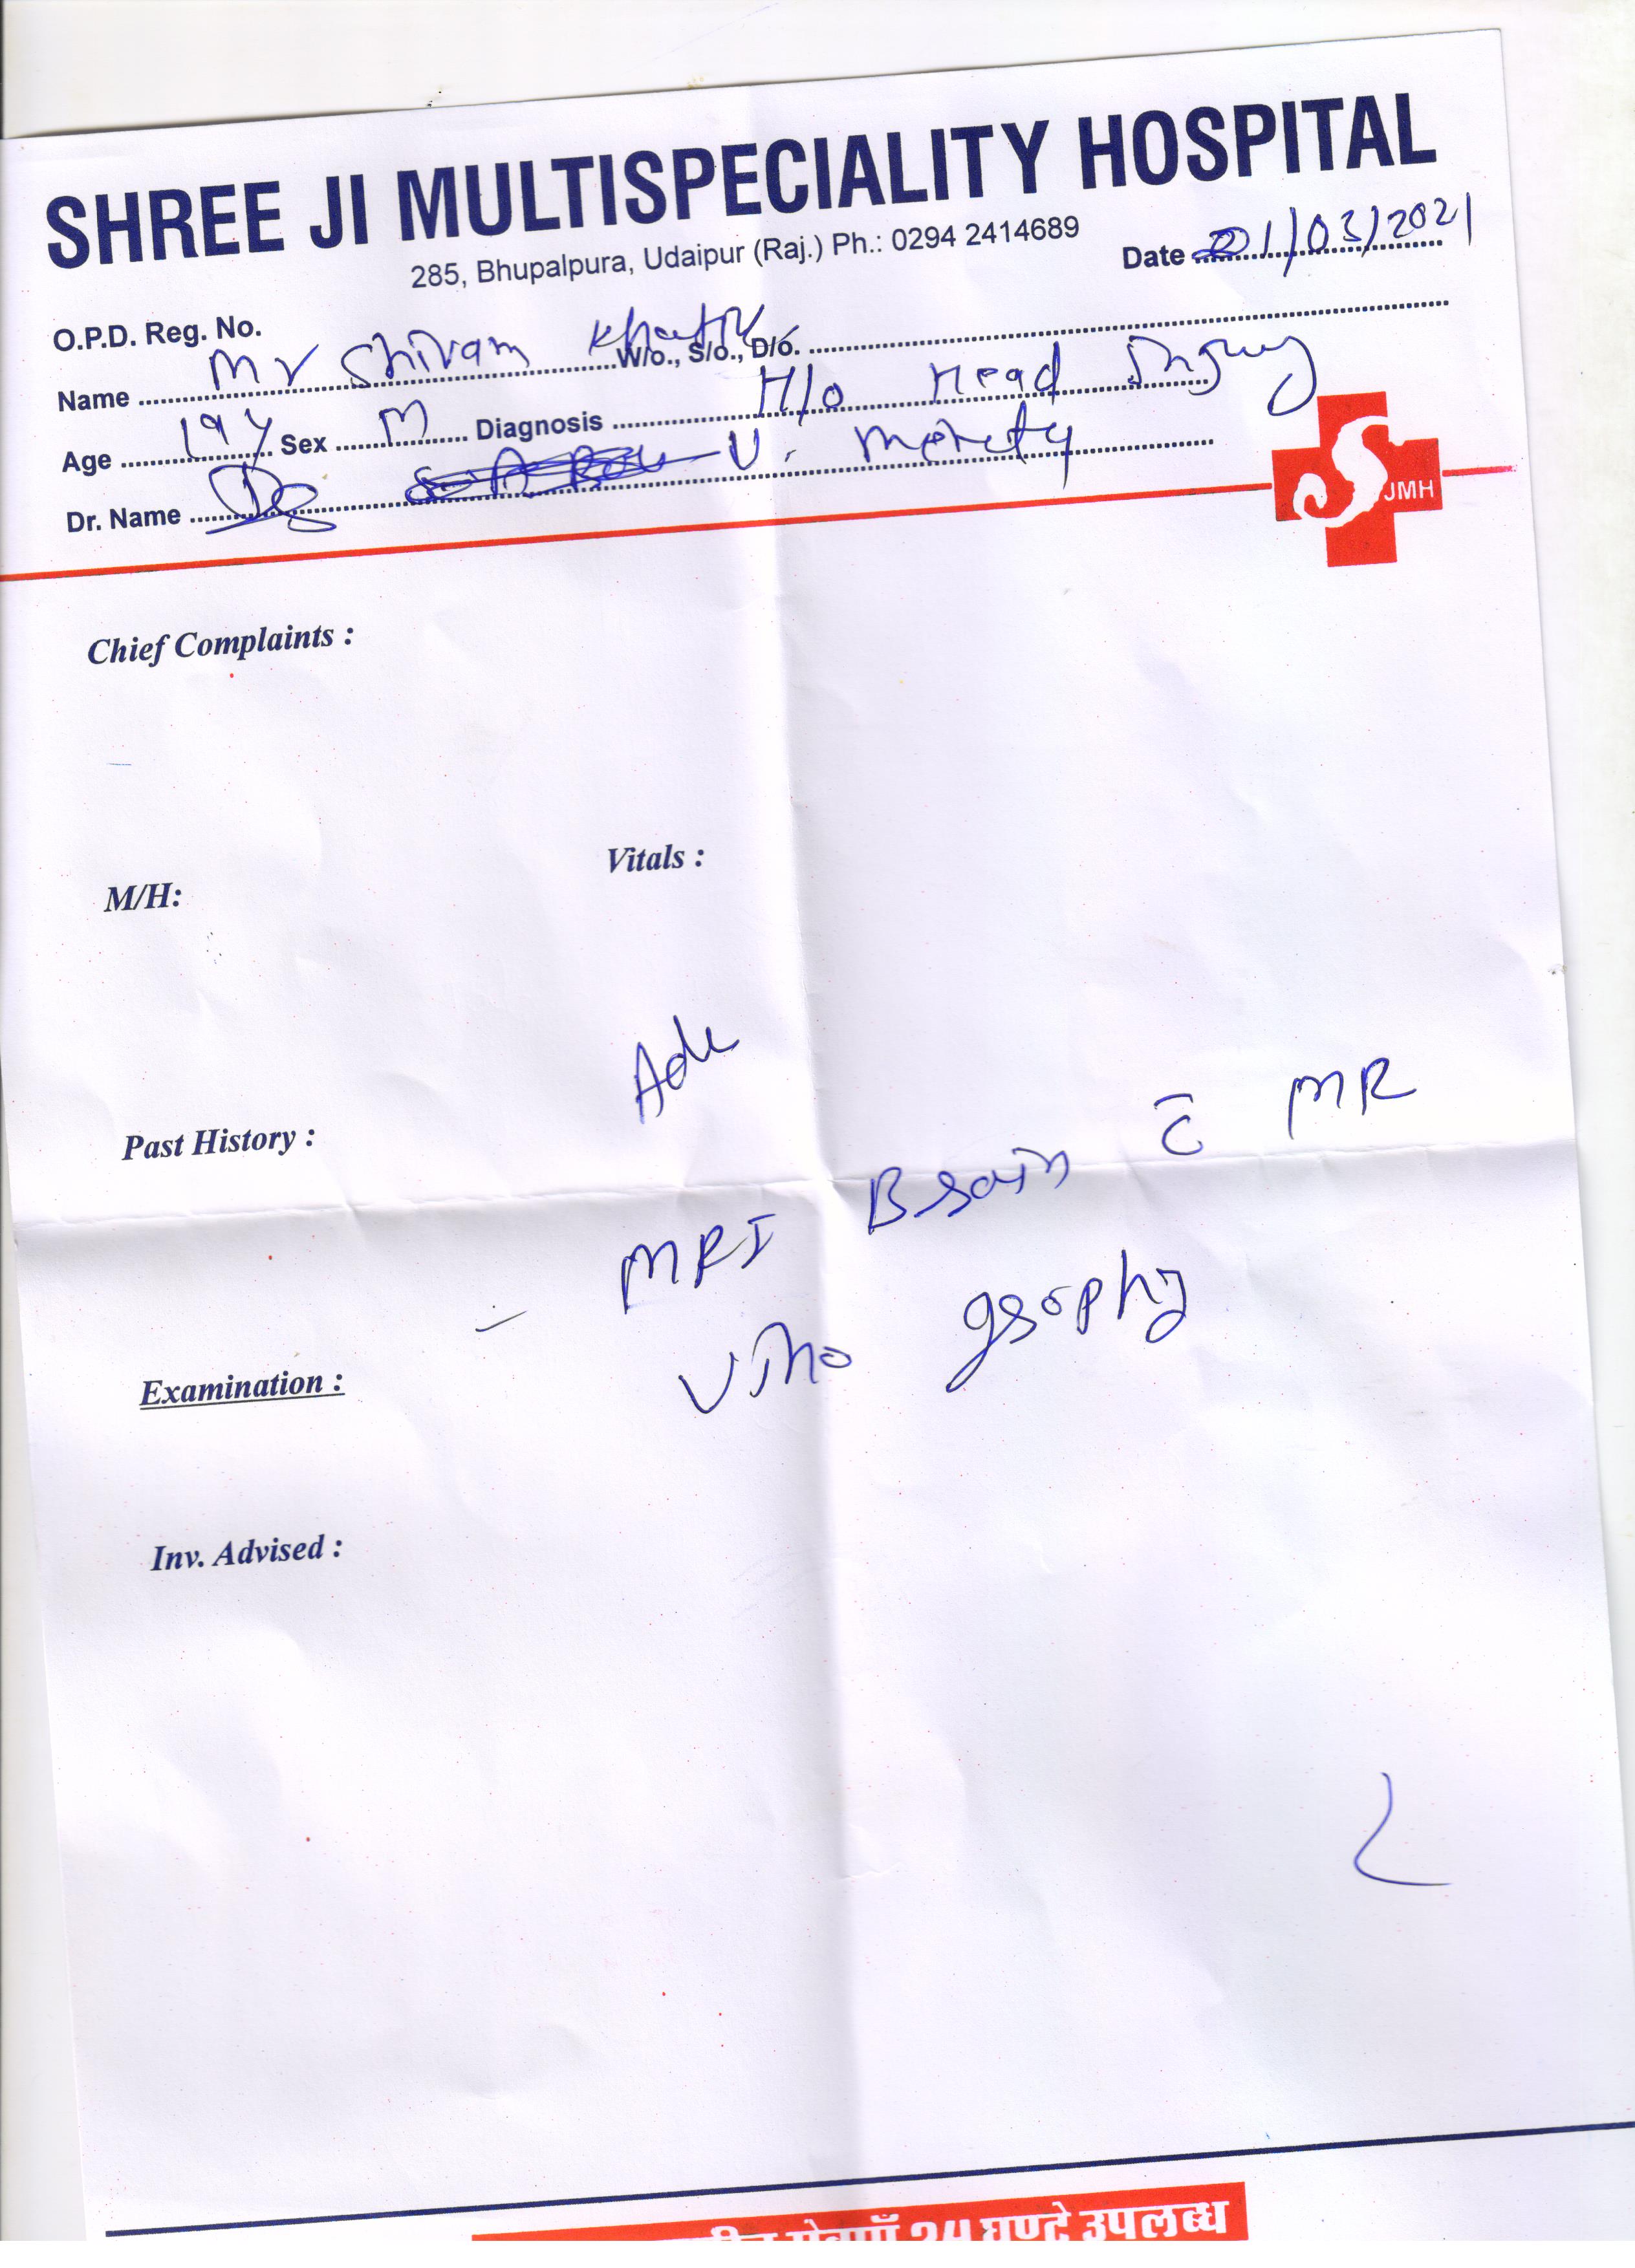 SHREE JI MULTISPECIALITY HOSPITAL
285, Bhupalpura, Udaipur (Raj.) Ph.: 0294 2414689
Date 01/03/2021
O.P.D. Reg. No.
Name Mr Shivam W/o., S/o., D/o.
Age 19y Sex M Diagnosis H/o Head Injury
Dr. Name U.
JMH
Chief Complaints :
Vitals :
M/H:
Adv
Past History :
- MRI Brain c̄ MR
Vino graphy
Examination :
Inv. Advised :
24 घण्टे उपलब्ध